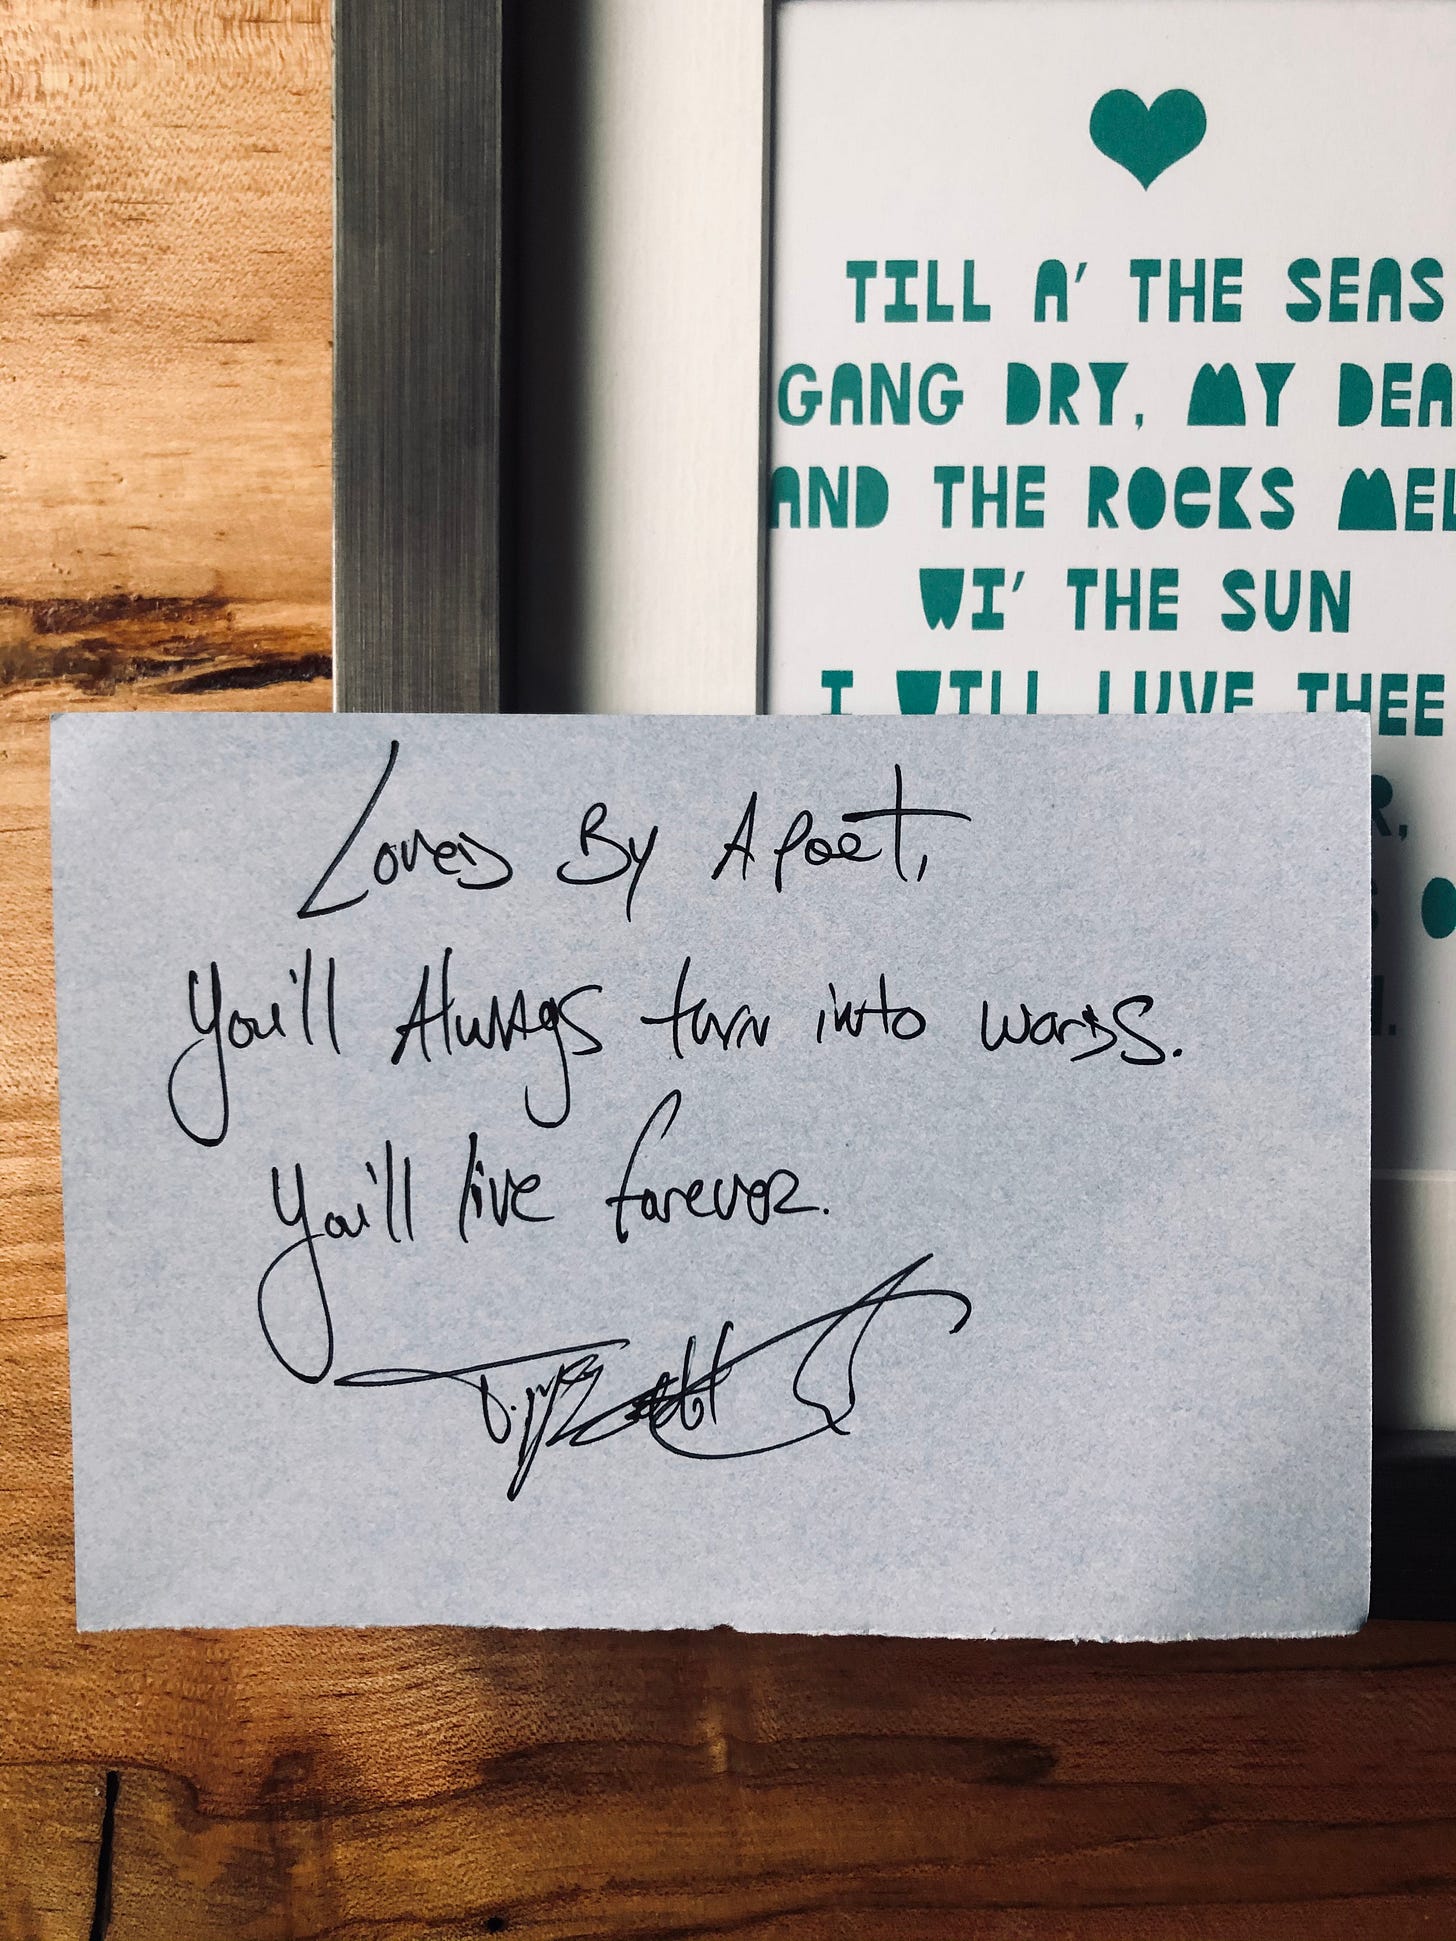 TILL A' THE SEAS
GANG DRY, MY DEA
AND THE ROCKS MEL
WI' THE SUN
I WILL LUVE THEE
R,
Loved By A Poet,
You'll Always turn into words.
You'll live forever.